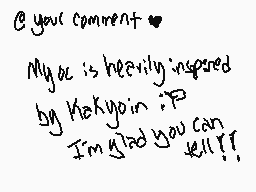 @ your comment ♥
My oc is heavily inspired
by Kakyoin :P
I'm glad you can
tell!!